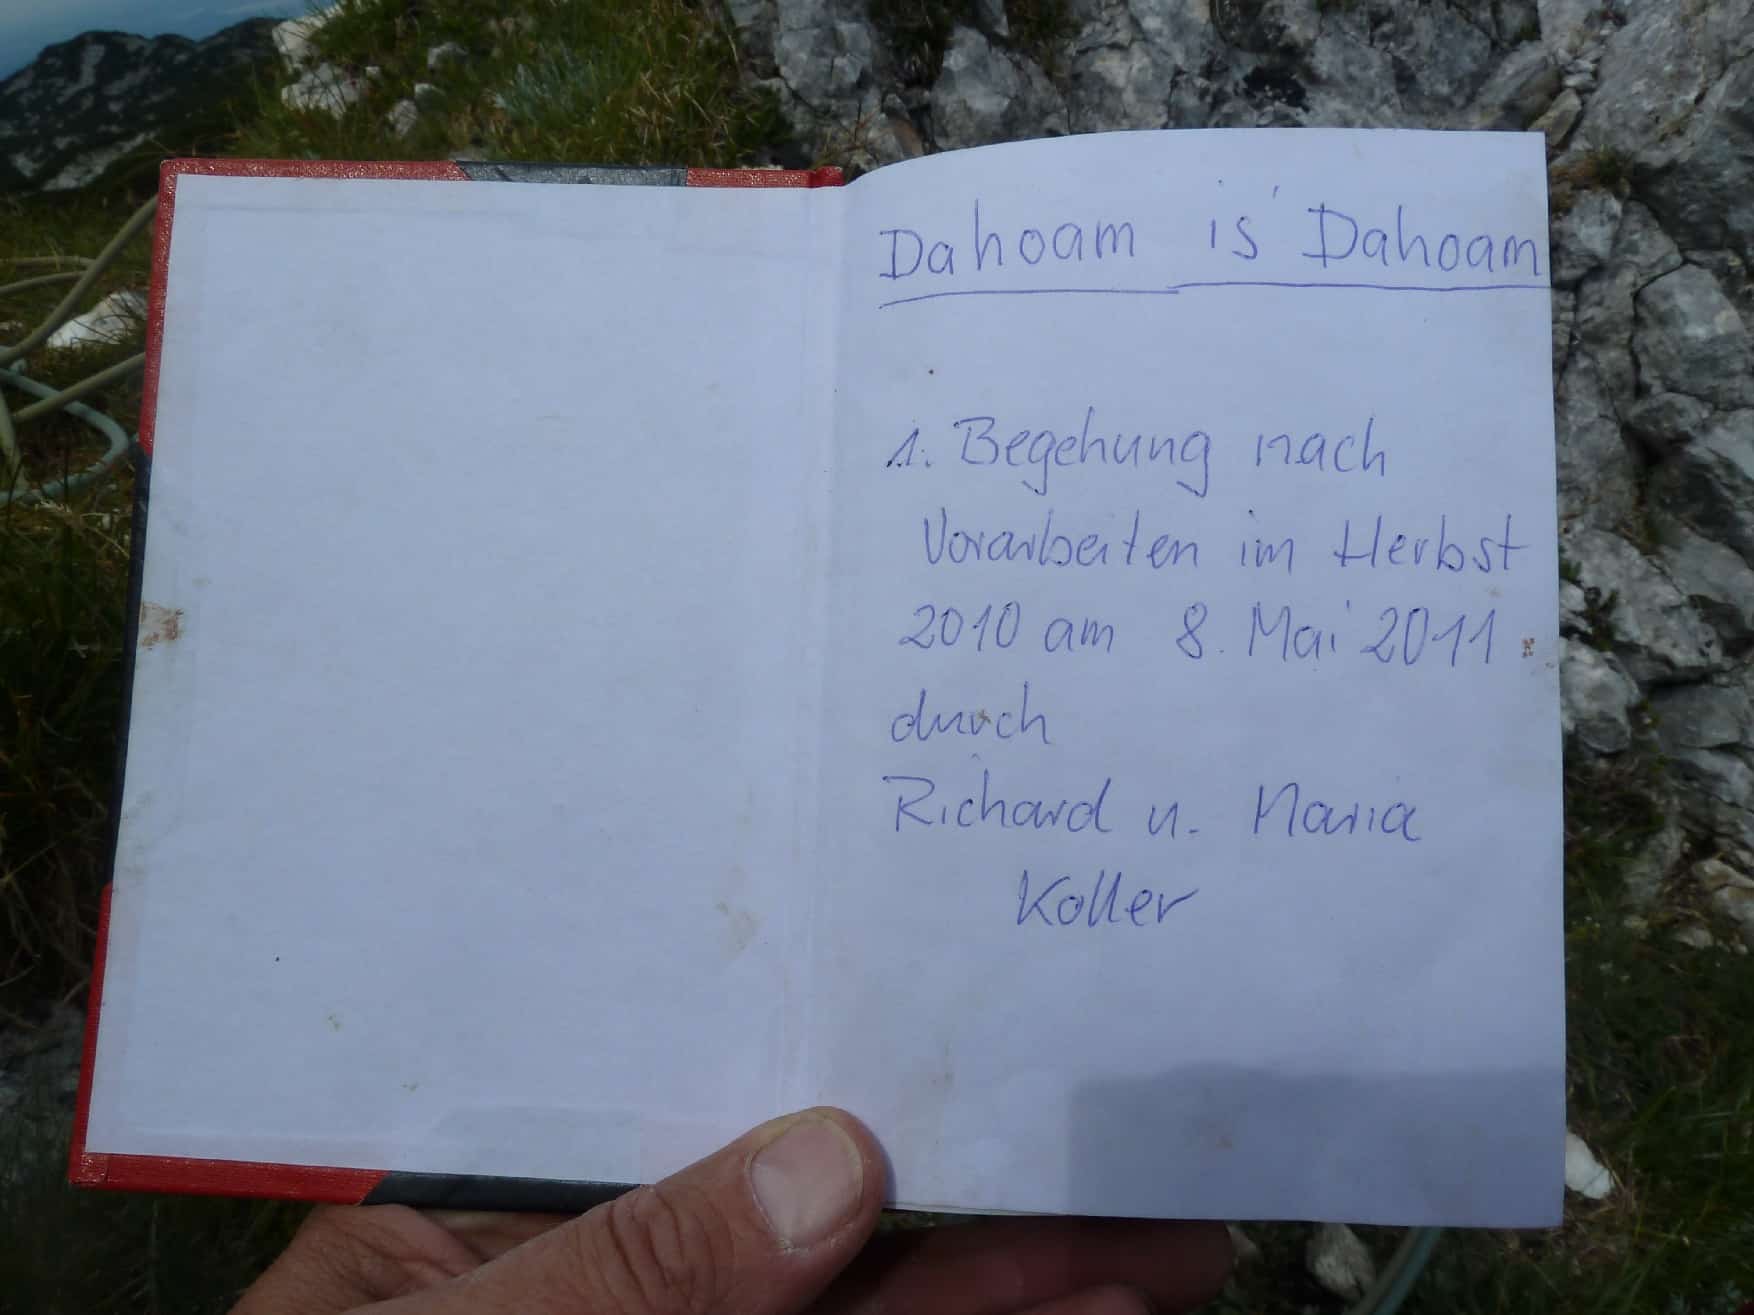 Dahoam is' Dahoam
1. Begehung nach
Vorarbeiten im Herbst
2010 am 8. Mai 2011
durch
Richard u. Maria
Koller